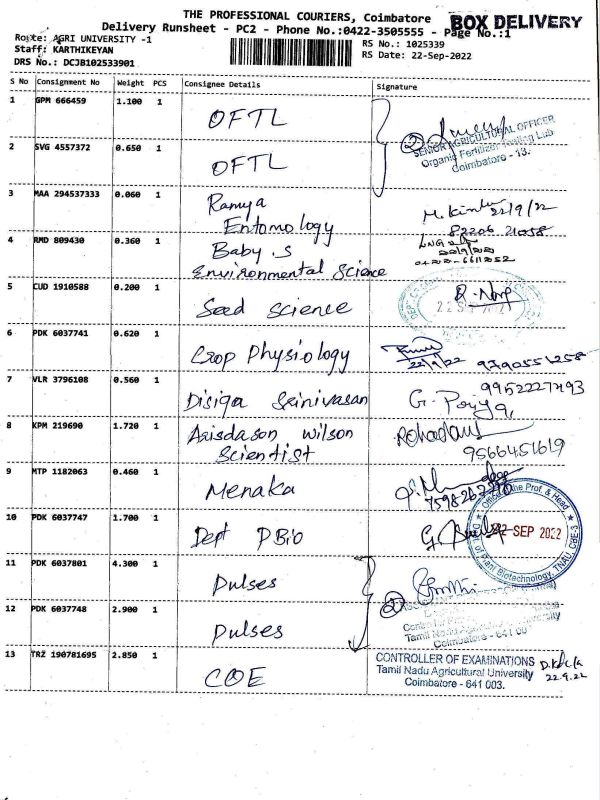 THE PROFESSIONAL COURIERS, Coimbatore
BOX DELIVERY
Delivery Runsheet - PC2 - Phone No.:0422-3505555 - Page No.:1
Route: AGRI UNIVERSITY -1
RS No.: 1025339
Staff: KARTHIKEYAN
RS Date: 22-Sep-2022
DRS No.: DCJB102533901
S No Consignment No Weight PCS Consignee Details Signature
1 GPM 666459 1.100 1 OFTL
SENIOR AGRICULTURAL OFFICER
Organic Fertilizer Testing Lab
Coimbatore - 13.
2 SVG 4557372 0.650 1 OFTL
3 MAA 294537333 0.060 1 Ramya
Entomology
22/9/22
82206 21058
4 RMD 809430 0.360 1 Baby.S
Environmental Science
5 CUD 1910588 0.200 1 Seed Science
6 PDK 6037741 0.620 1 Crop Physiology
22/9/22
7 VLR 3796108 0.560 1 Disiga Srinivasan G. Poriya,
9952227493
8 KPM 219690 1.720 1 Arisdason Wilson
Scientist
9566451619
9 MTP 1182063 0.460 1 Menaka
10 PDK 6037747 1.700 1 Dept PBio
Office of the Prof. & Head
22 SEP 2022
of Plant Biotechnology, TNAU, CBE-3
11 PDK 6037801 4.300 1 Pulses
12 PDK 6037748 2.900 1 Pulses
Tamil Nadu
Coimbatore - 641 00
13 TRZ 190781695 2.850 1 COE
CONTROLLER OF EXAMINATIONS
Tamil Nadu Agricultural University
Coimbatore - 641 003.
22.9.22